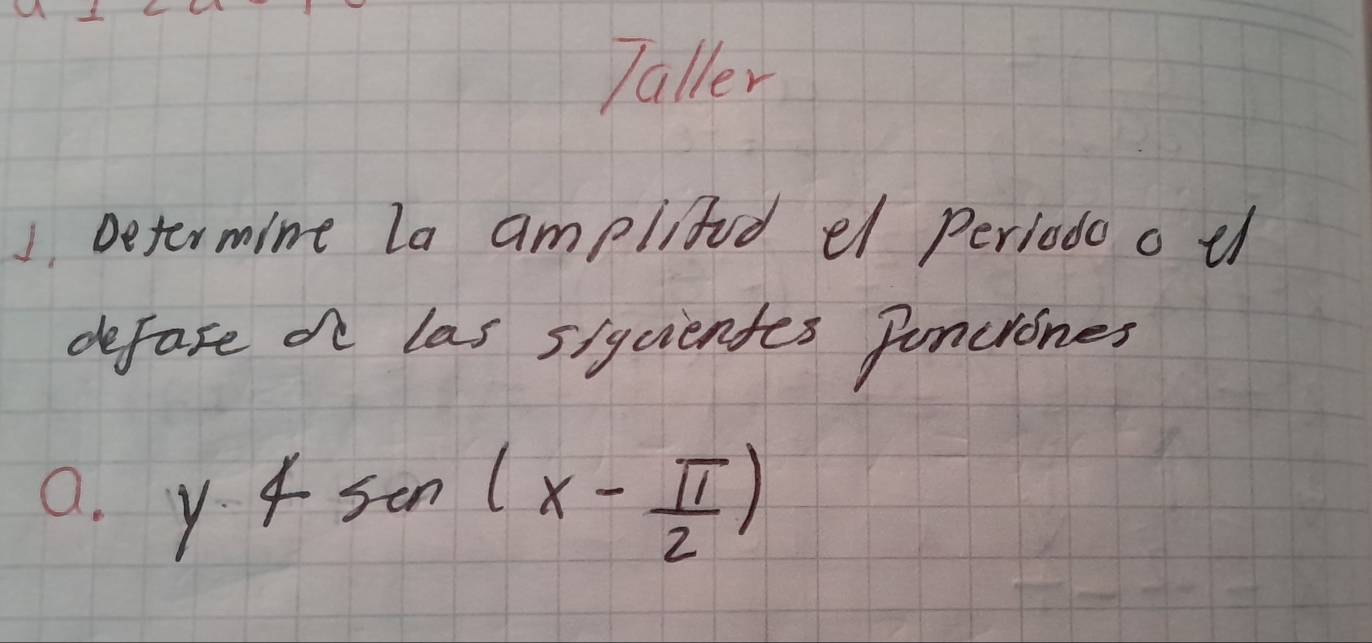 Taller
1. Determine la amplitud el periodo o el
defase de las siguientes funciones
a. y. 4 sen (x - π/2)